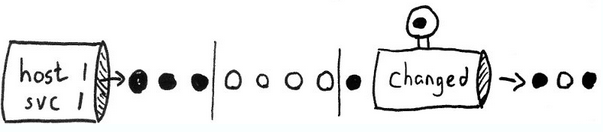 host 1
svc 1
changed